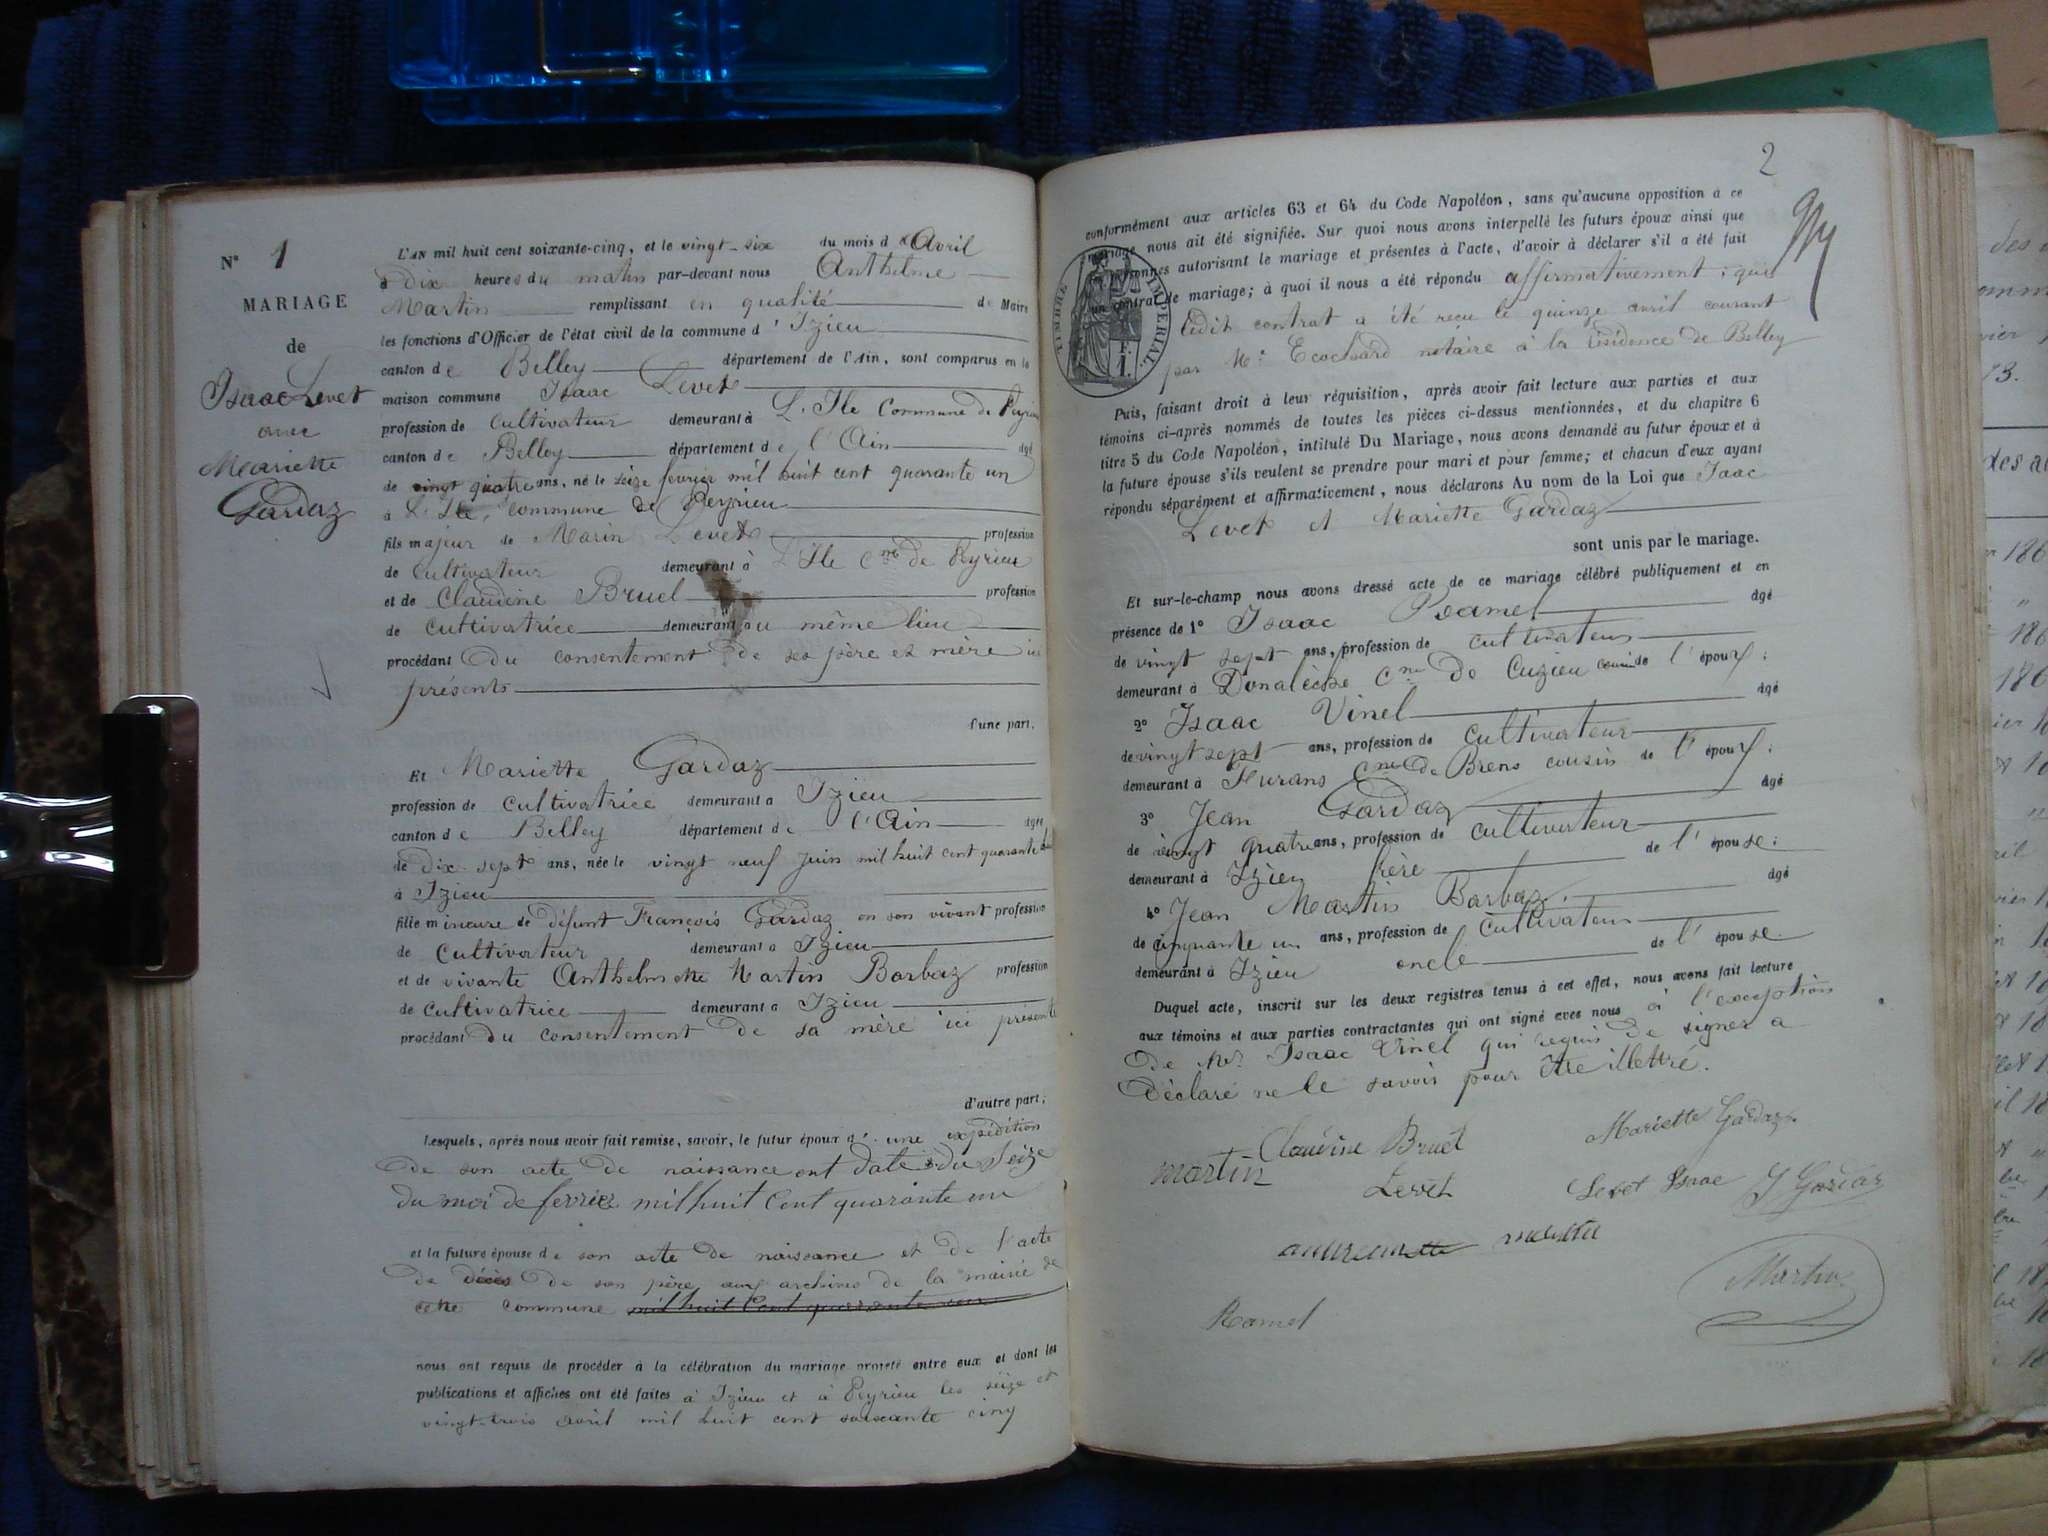 N° 1
MARIAGE
de
Isaac Levet
avec
Mariette
Gardaz
L'AN mil huit cent soixante-cinq, et le vingt-six du mois d'Avril
à dix heures du matin par-devant nous Anthelme
Martin remplissant en qualité de Maire
les fonctions d'Officier de l'état civil de la commune d'Izieu
canton de Belley département de l'Ain, sont comparus en la
maison commune Isaac Levet
profession de Cultivateur demeurant à L'Ile Commune de Peyrieu
canton de Belley département de l'Ain âgé
de vingt quatre ans, né le seize fevrier mil huit cent quarante un
à L'Ile, commune de Peyrieu
fils majeur de Marin Levet profession
de Cultivateur demeurant à L'Ile Cne de Peyrieu
et de Claudine Bruel profession
de Cultivatrice demeurant au même lieu
procédant du consentement de ses père et mère ici
présents
d'une part.
Et Mariette Gardaz
profession de Cultivatrice demeurant à Izieu
canton de Belley département de l'Ain âgée
de dix-sept ans, née le vingt neuf Juin mil huit cent quarante
à Izieu
fille mineure de défunt François Gardaz en son vivant profession
de Cultivateur demeurant à Izieu
et de vivante Anthelmette Martin Barbaz profession
de Cultivatrice demeurant à Izieu
procédant du consentement de sa mère ici présente
d'autre part;
Lesquels, après nous avoir fait remise, savoir, le futur époux d'une expédition
de son acte de naissance ent date du Seize
du moi de ferrier mil huit Cent quarante un
et la future épouse de son acte de naissance et de l'acte
de décès de son père aux archives de la mairie de
cette commune mil huit Cent quarante
nous ont requis de procéder à la célébration du mariage projeté entre eux et dont les
publications et affiches ont été faites à Izieu et à Peyrieu les seize et
vingt-trois avril mil huit cent soixante cinq
2
conformément aux articles 63 et 64 du Code Napoléon, sans qu'aucune opposition à ce
mariage nous ait été signifiée. Sur quoi nous avons interpellé les futurs époux ainsi que
personnes autorisant le mariage et présentes à l'acte, d'avoir à déclarer s'il a été fait
contrat de mariage; à quoi il nous a été répondu affirmativement; que
ledit contrat a été reçu le quinze avril courant
par Me Ecochard notaire à la résidence de Belley
TIMBRE IMPERIAL.
1 F.
Puis, faisant droit à leur réquisition, après avoir fait lecture aux parties et aux
témoins ci-après nommés de toutes les pièces ci-dessus mentionnées, et du chapitre 6
titre 5 du Code Napoléon, intitulé Du Mariage, nous avons demandé au futur époux et à
la future épouse s'ils veulent se prendre pour mari et pour femme; et chacun d'eux ayant
répondu séparément et affirmativement, nous déclarons Au nom de la Loi que Isaac
Levet et Mariette Gardaz
sont unis par le mariage.
Et sur-le-champ nous avons dressé acte de ce mariage célébré publiquement et en
présence de 1° Isaac Ramel âgé
de vingt sept ans, profession de cultivateur
demeurant à Donalèche Cne de Cuzieu cousin de l'époux;
2° Isaac Vinel âgé
de vingt sept ans, profession de Cultivateur
demeurant à Hurans Cne de Brens cousin de l'époux;
3° Jean Gardaz âgé
de vingt quatre ans, profession de Cultivateur
demeurant à Izieu frère de l'épouse;
4° Jean Martin Barbaz âgé
de cinquante un ans, profession de Cultivateur
demeurant à Izieu oncle de l'épouse.
Duquel acte, inscrit sur les deux registres tenus à cet effet, nous avons fait lecture
aux témoins et aux parties contractantes qui ont signé avec nous à l'exception
de Mr Isaac Vinel qui requis de signer a
déclaré ne le savoir pour être illettré.
Claudine Bruel Mariette Gardaz
martin Levet Levet Isaac J Gardaz
Ramel Martin